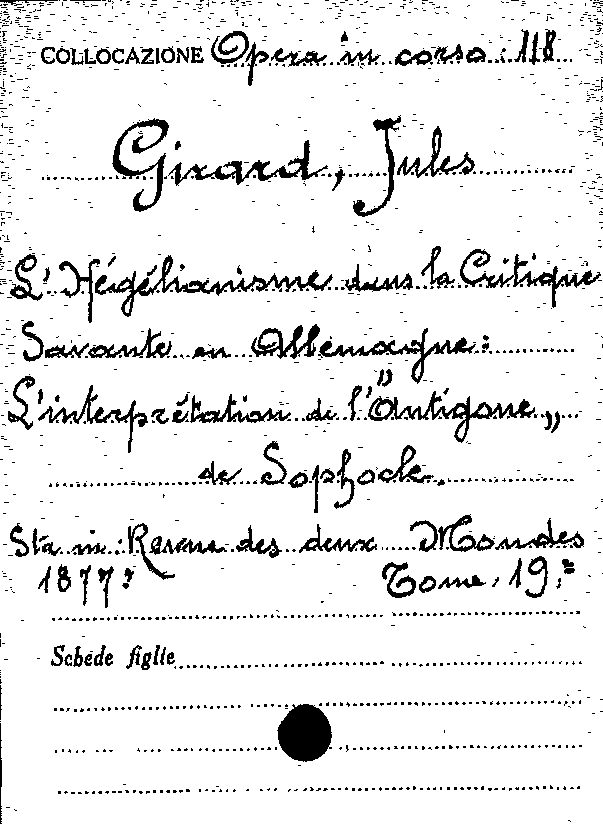 COLLOCAZIONE Opera in corso: 118
Girard, Jules
L'Hégélianisme dans la Critique
Savante en Allemagne:
L'interprétation de l'"Antigone„
de Sophocle.
Sta in: Revue des deux Mondes
1877: Tome. 19.
Schede figlie